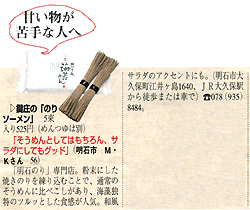 甘い物が
苦手な人へ
▷鍵庄の「のり
ソーメン」 5束
入り525円(めんつゆは別)
「そうめんとしてはもちろん、サ
ラダにしてもグッド」(明石市 M・
Kさん 56)
「明石のり」専門店。粉末にした
焼きのりを練り込むことで、通常の
そうめんに比べこしがあり、海藻独
特のツルッとした食感が人気。和風
サラダのアクセントにも。(明石市大
久保町江井ヶ島1640、ＪＲ大久保駅
から徒歩または車で) ☎078(935)
8484。